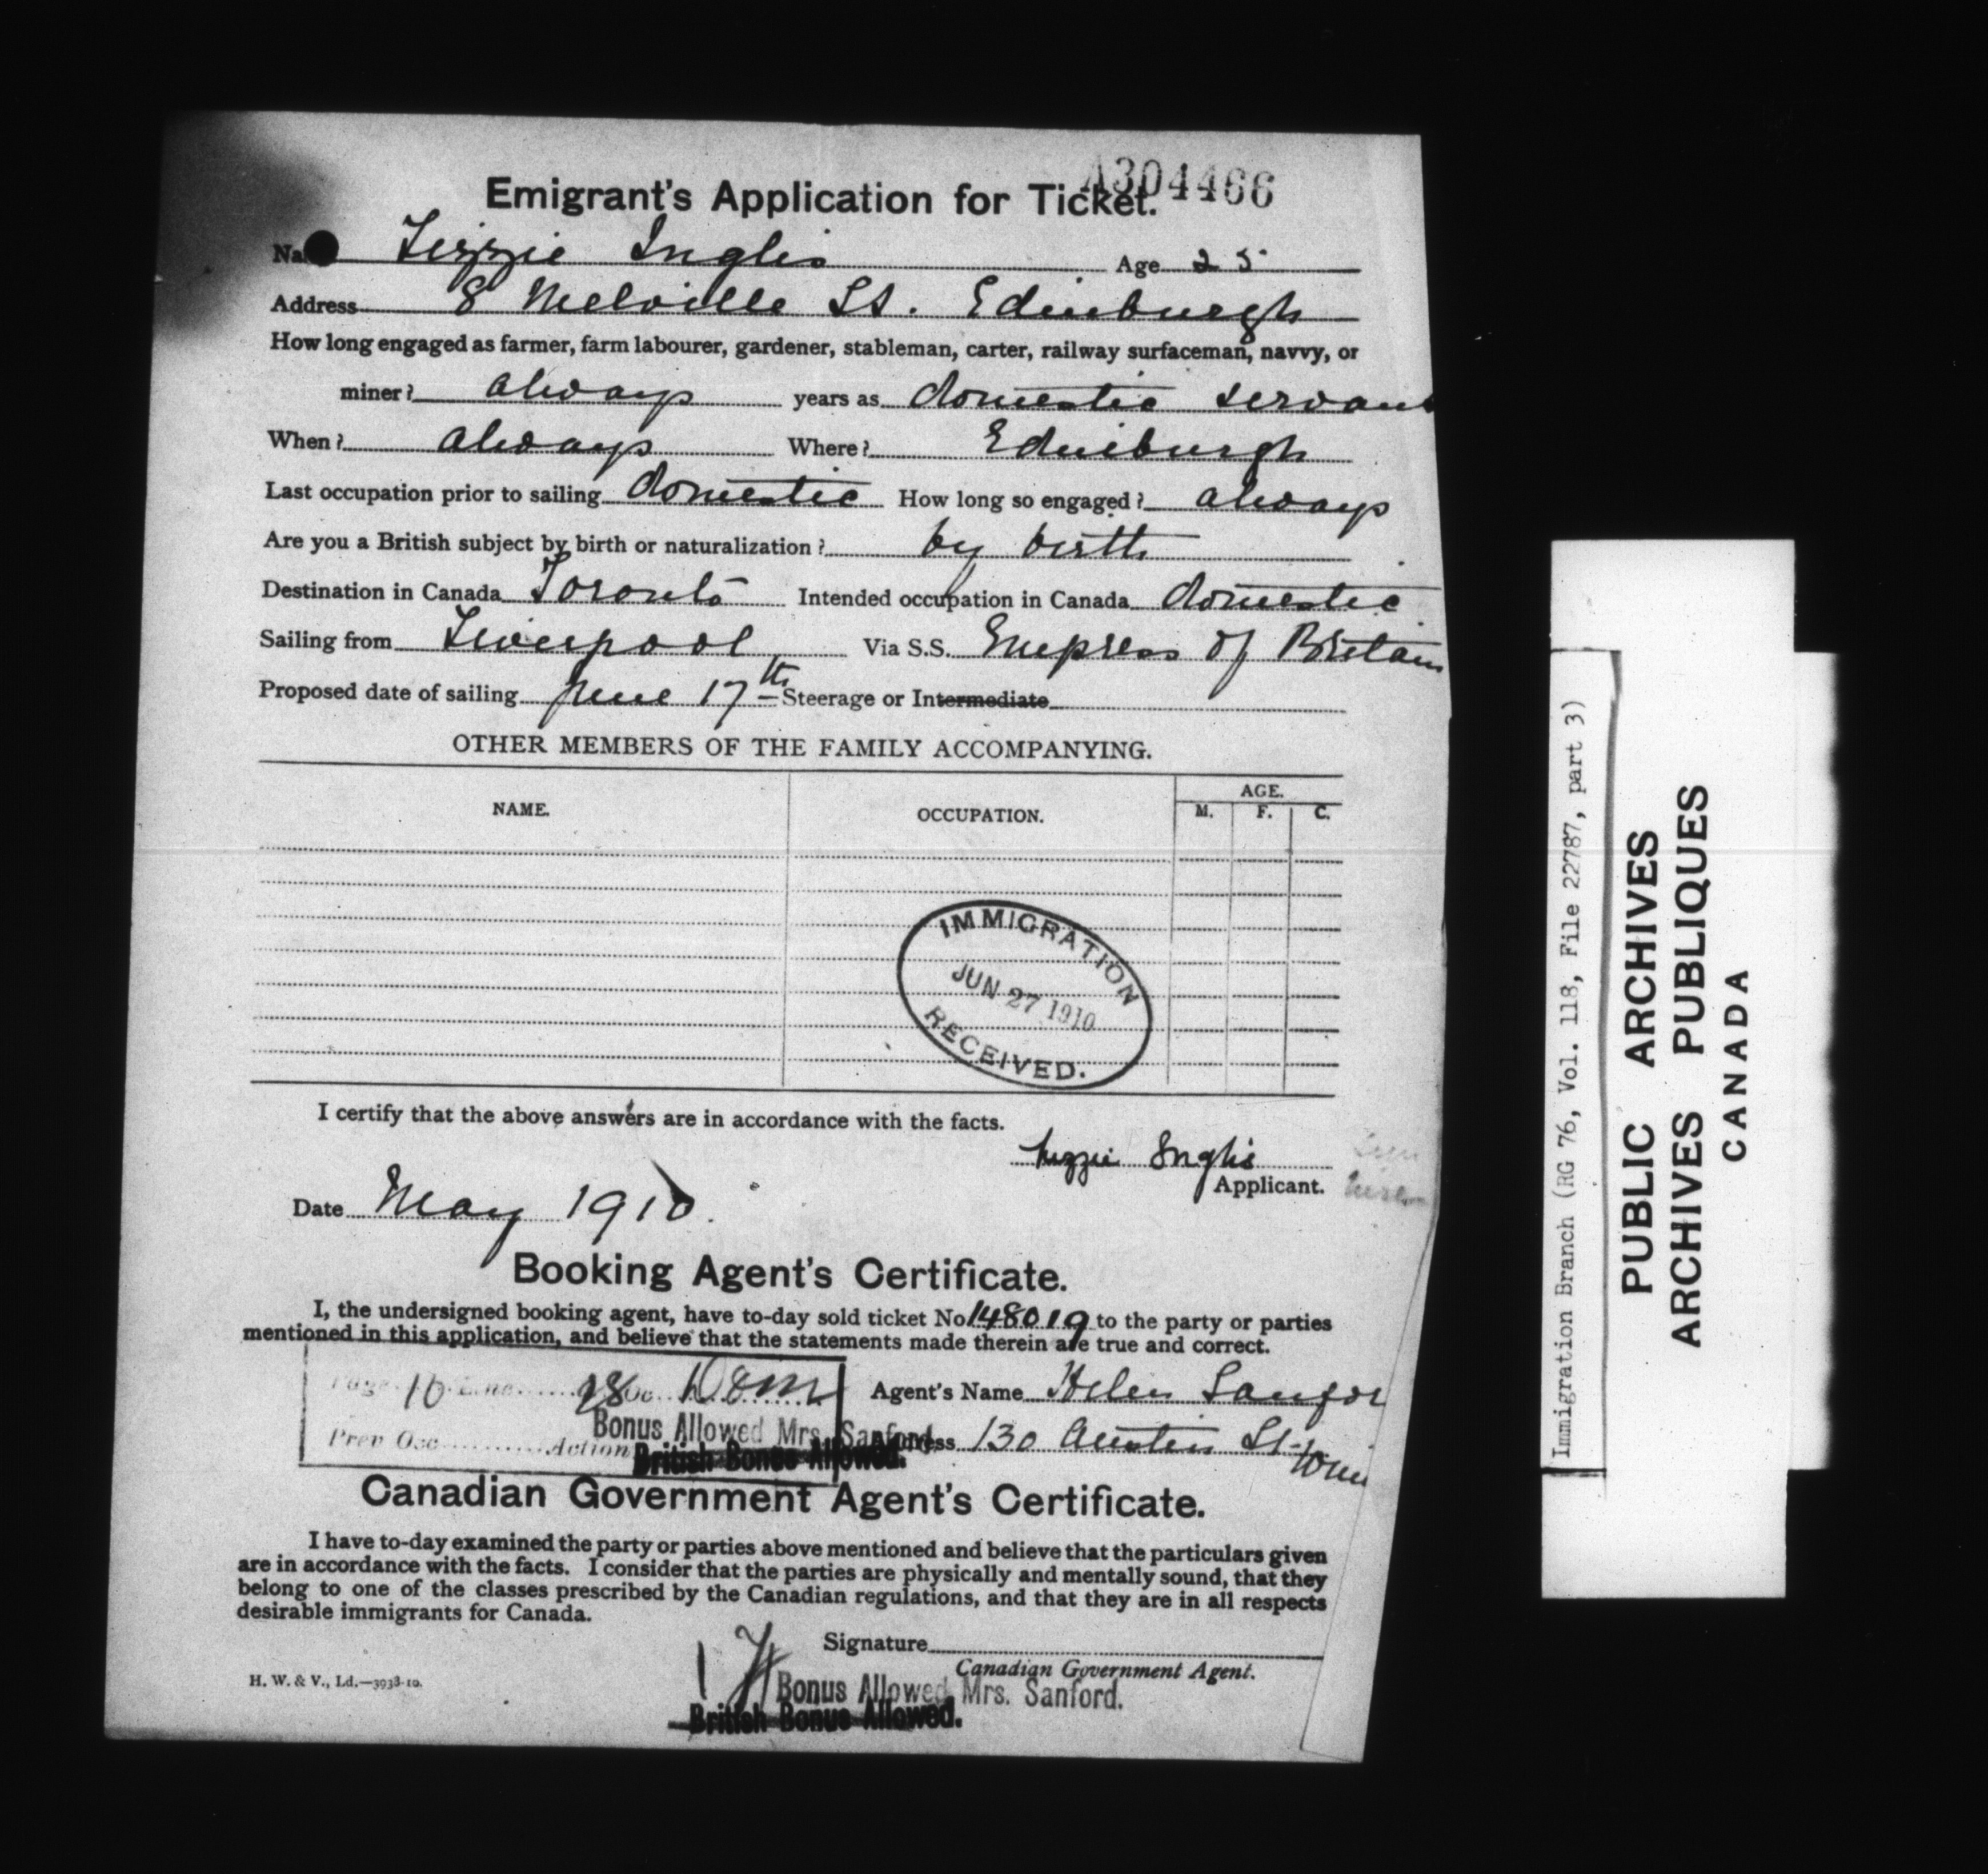 A304466
Emigrant's Application for Ticket.
Lizzie Inglis Age 25
Address 8 Melville St. Edinburgh
How long engaged as farmer, farm labourer, gardener, stableman, carter, railway surfaceman, navvy, or
miner? always years as domestic servant
When? always Where? Edinburgh
Last occupation prior to sailing domestic How long so engaged? always
Are you a British subject by birth or naturalization? by birth
Destination in Canada Toronto Intended occupation in Canada domestic
Sailing from Liverpool Via S.S. Empress of Britain
Proposed date of sailing June 17th Steerage or Intermediate
OTHER MEMBERS OF THE FAMILY ACCOMPANYING.
NAME. OCCUPATION. AGE.
M. F. C.
IMMIGRATION
JUN 27 1910
RECEIVED.
I certify that the above answers are in accordance with the facts.
Lizzie Inglis
Applicant.
Date May 1910.
Booking Agent's Certificate.
I, the undersigned booking agent, have to-day sold ticket No 148019 to the party or parties
mentioned in this application, and believe that the statements made therein are true and correct.
Page 16 Line 28 Oc. Dom Agent's Name Helen Sanfor
Bonus Allowed Mrs. Sanford. Address 130 Austin St.
Prev Occ Action British Bonus Allowed.
Canadian Government Agent's Certificate.
I have to-day examined the party or parties above mentioned and believe that the particulars given
are in accordance with the facts. I consider that the parties are physically and mentally sound, that they
belong to one of the classes prescribed by the Canadian regulations, and that they are in all respects
desirable immigrants for Canada.
Signature
Canadian Government Agent.
H. W. & V., Ld.—3938-10.
Bonus Allowed Mrs. Sanford.
British Bonus Allowed.
Immigration Branch (RG 76, Vol. 118, File 22787, part 3)
PUBLIC ARCHIVES
ARCHIVES PUBLIQUES
CANADA